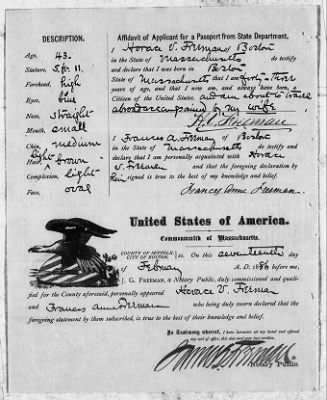 DESCRIPTION.
Age, 43.
Stature, 5 ft 11.
Forehead, high
Eyes, blue
Nose, straight
Mouth, small
Chin, medium
Hair, light brown
Complexion, light
Face, oval
Affidavit of Applicant for a Passport from State Department.
I Horace V. Freeman of Boston
in the State of Massachusetts do testify
and declare that I was born in Boston
State of Massachusetts that I am forty-three
years of age, and that I now am, and always have been, a
Citizen of the United States. and am about to travel
abroad accompanied by my wife
H. V. Freeman
I Frances A. Freeman of Boston
in the State of Massachusetts do testify and
declare that I am personally acquainted with Horace
V. Freeman and that the foregoing declaration by
him signed is true to the best of my knowledge and belief.
Frances Anne Freeman.
United States of America.
Commonwealth of Massachusetts.
COUNTY OF SUFFOLK,
CITY OF BOSTON, ss. On this seventeenth day
of February A.D. 1886 before me,
J. G. FREEMAN, a Notary Public, duly commissioned and quali-
fied for the County aforesaid, personally appeared Horace V. Freeman
and Frances Anne Freeman who being duly sworn declared that the
foregoing statement by them subscribed, is true to the best of their knowledge and belief.
In Testimony whereof, I have hereunto set my hand and affixed
my seal of office, this day and year last above written.
Notary Public.